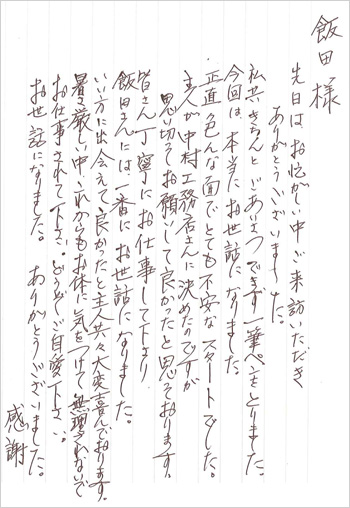 飯田様
先日はお忙がしい中ご来訪いただき
ありがとうございました。
私共きちんとごあいさつできず一筆ペンをとりました。
今回は、本当にお世話になりました。
正直、色んな面でとても不安なスタートでした。
主人が中村工務店さんに決めたのですが
思い切ってお願いして良かったと思っております。
皆さん丁寧にお仕事して下さり
飯田さんには一番にお世話になりました。
いい方に出会えて良かったと主人共々大変喜んでおります。
暑さ厳しい中、これからもお体に気をつけて無理されないで
お仕事されて下さい。どうぞご自愛下さい。
お世話になりました。ありがとうございました。
感謝